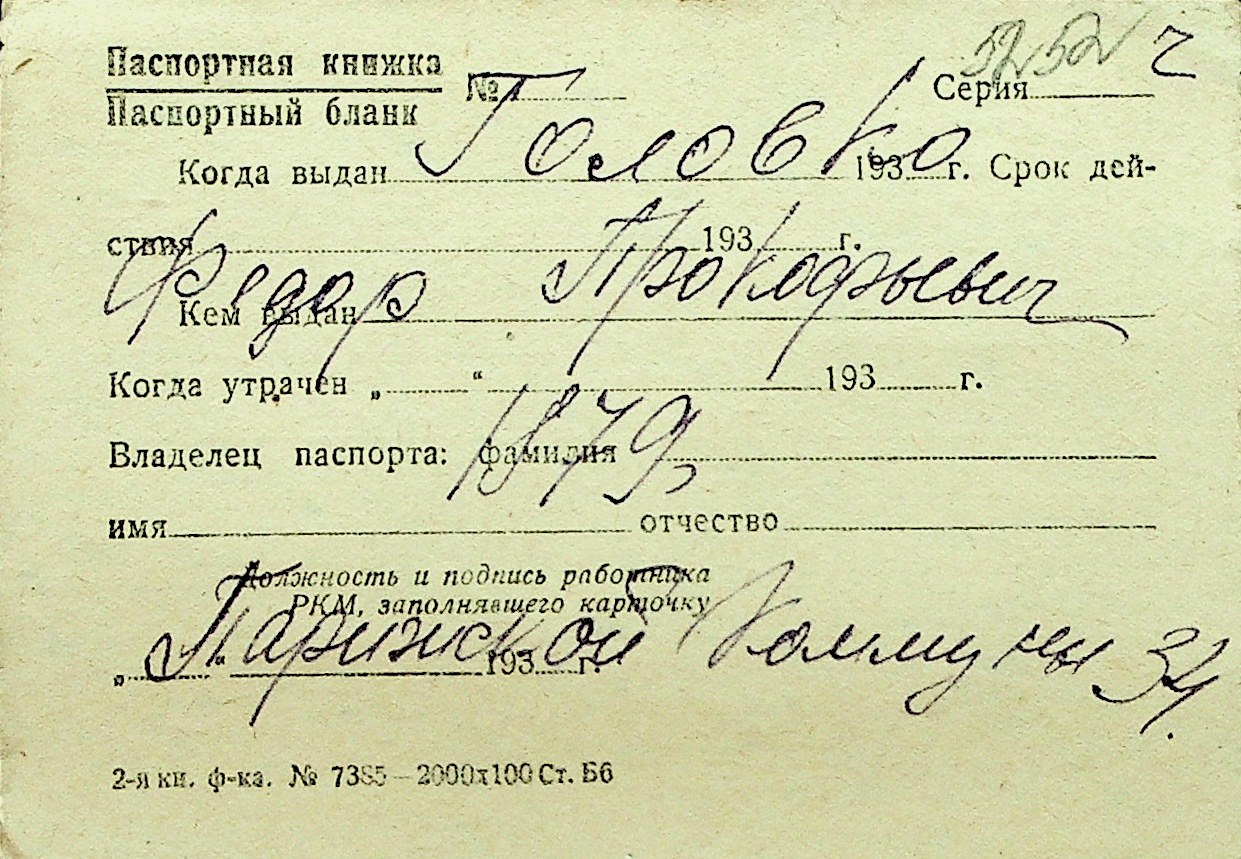 5252 ч
Паспортная книжка
Паспортный бланк № Серия
Головко
Когда выдан 193 г. Срок дей-
ствия 193 г.
Федор Прокофьевич
Кем выдан
Когда утрачен „ “ 193 г.
1879
Владелец паспорта: фамилия
имя отчество
Должность и подпись работника
РКМ, заполнявшего карточку
Парижской Коммуны 34.
„ “ 193 г.
2-я кн. ф-ка. № 7385—2000х100 Ст. Б6